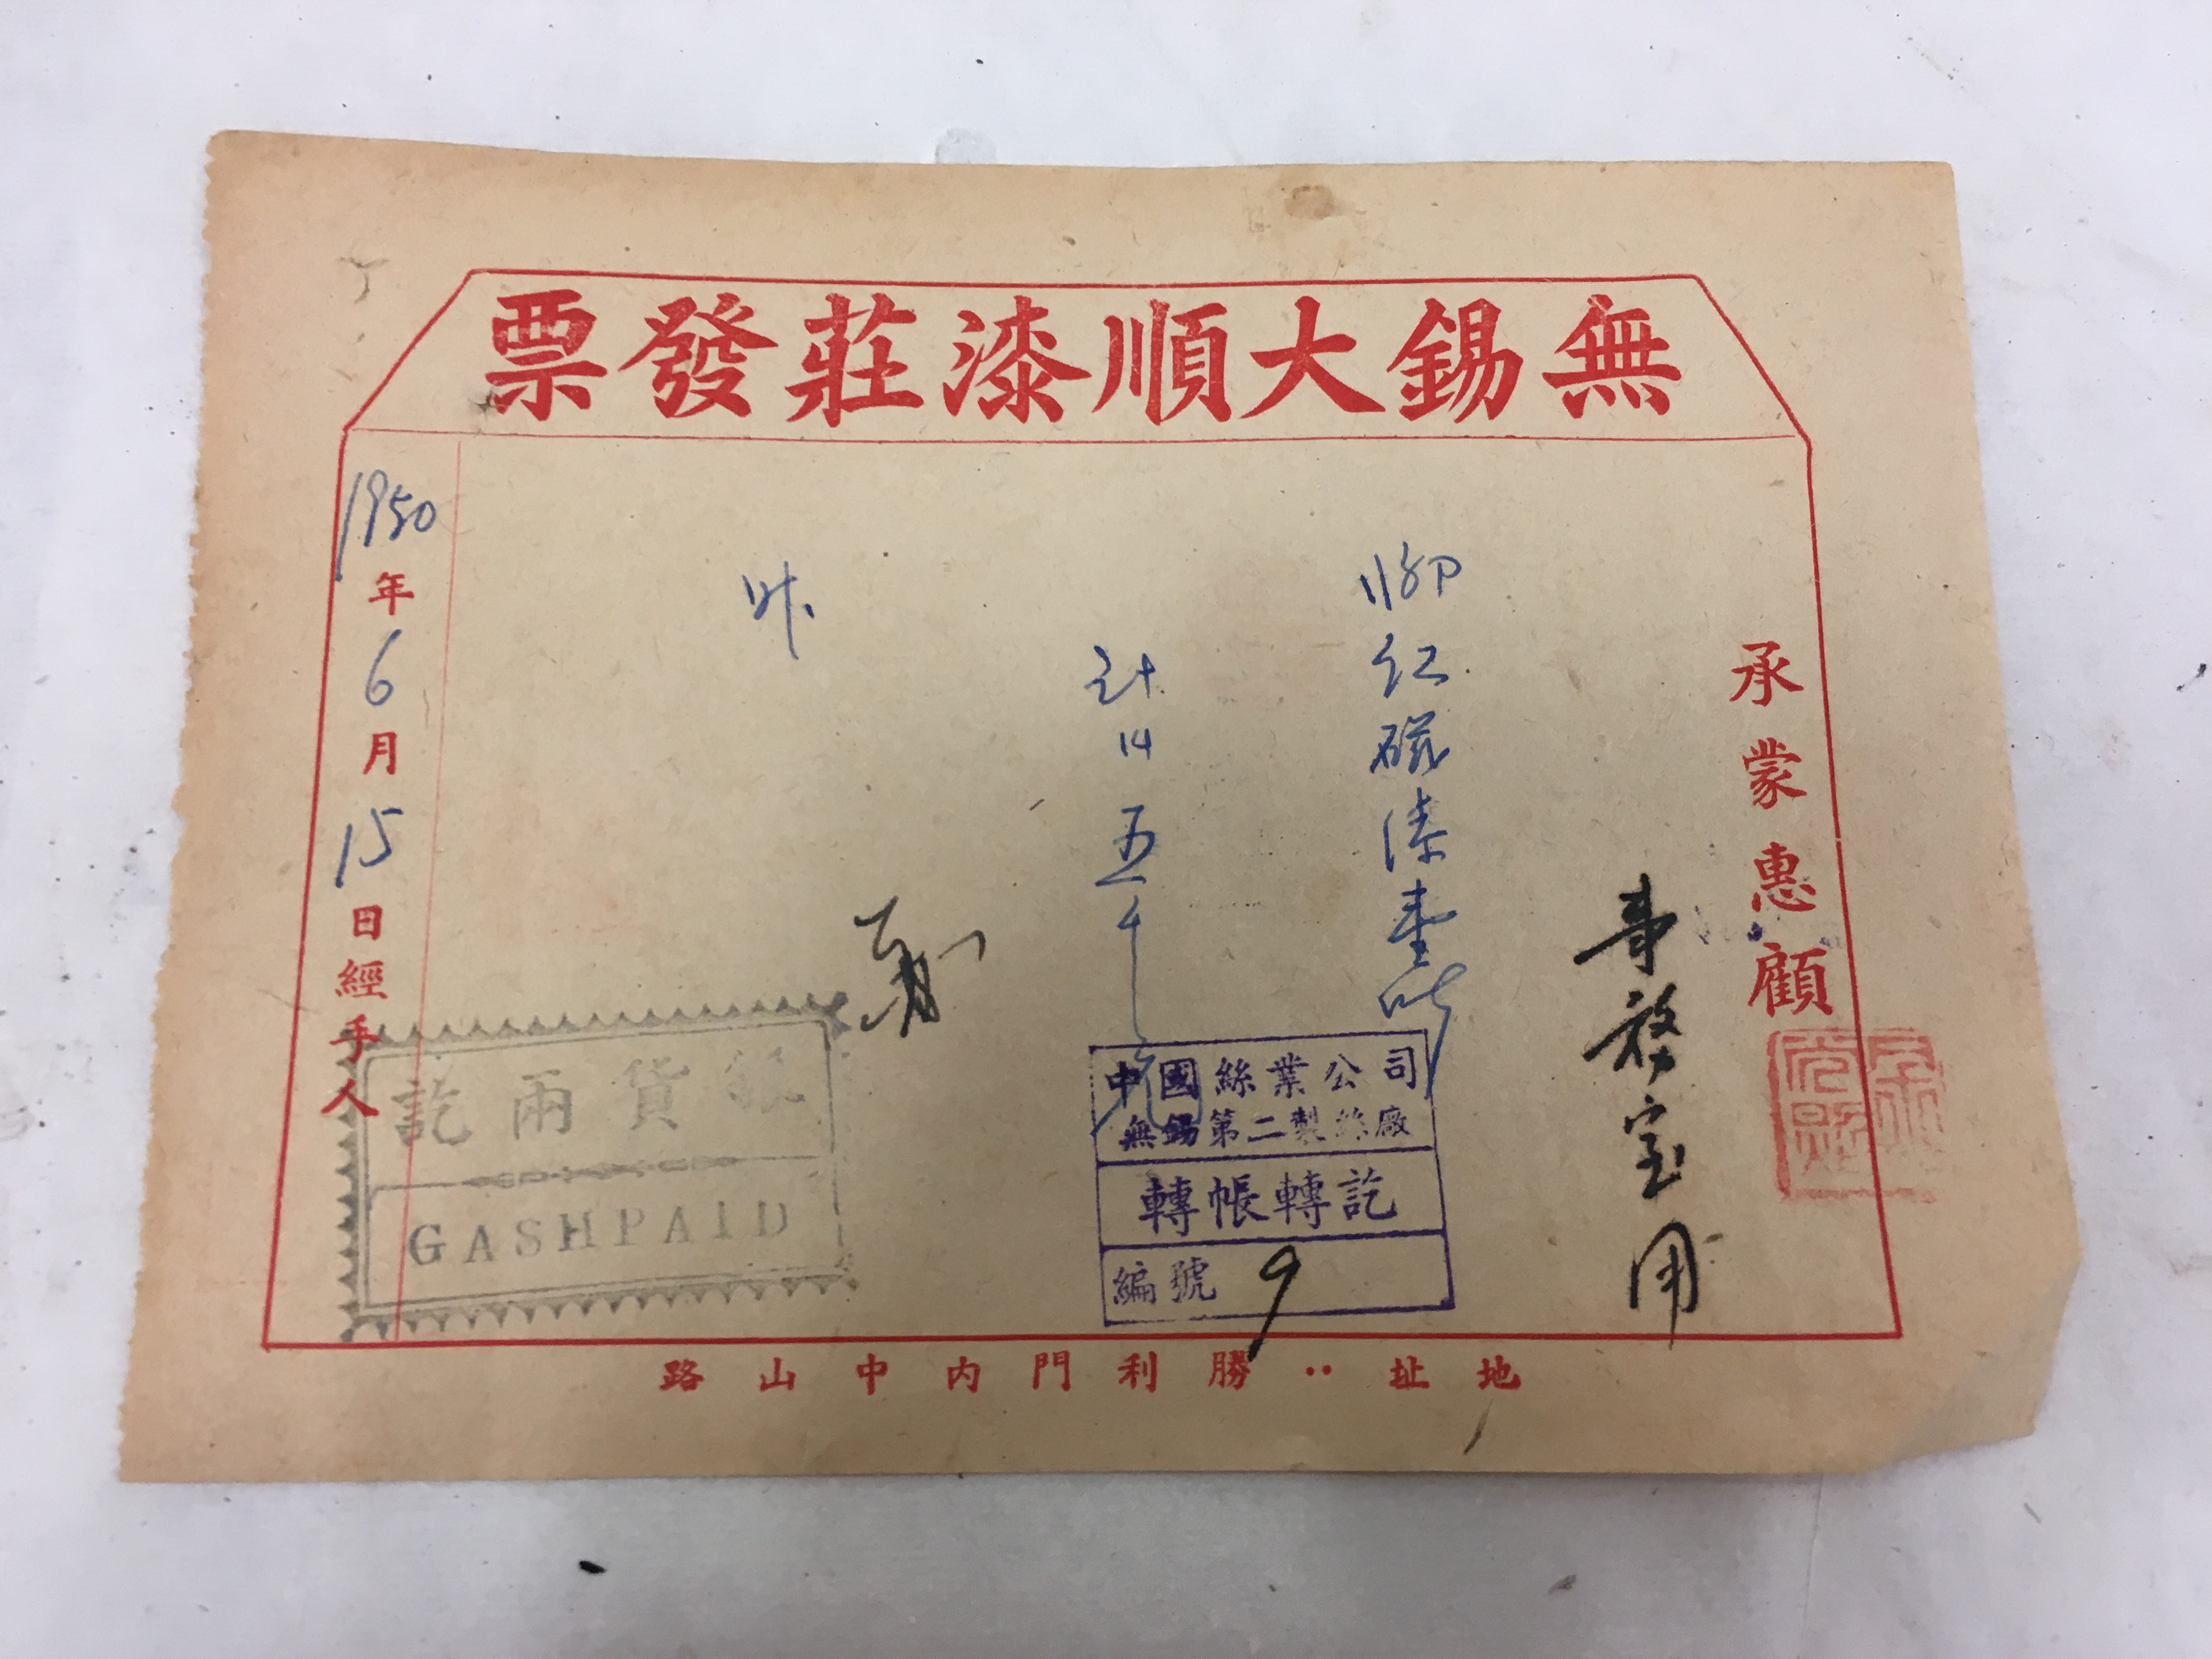 無錫大順漆莊發票
承蒙惠顧
事務室用
紅磁漆壹听
計 五千元
1950年6月15日經手人
中國絲業公司
無錫第二製絲廠
轉帳轉訖
編號 9
銀貨兩訖
GASHPAID
地址：勝利門內中山路